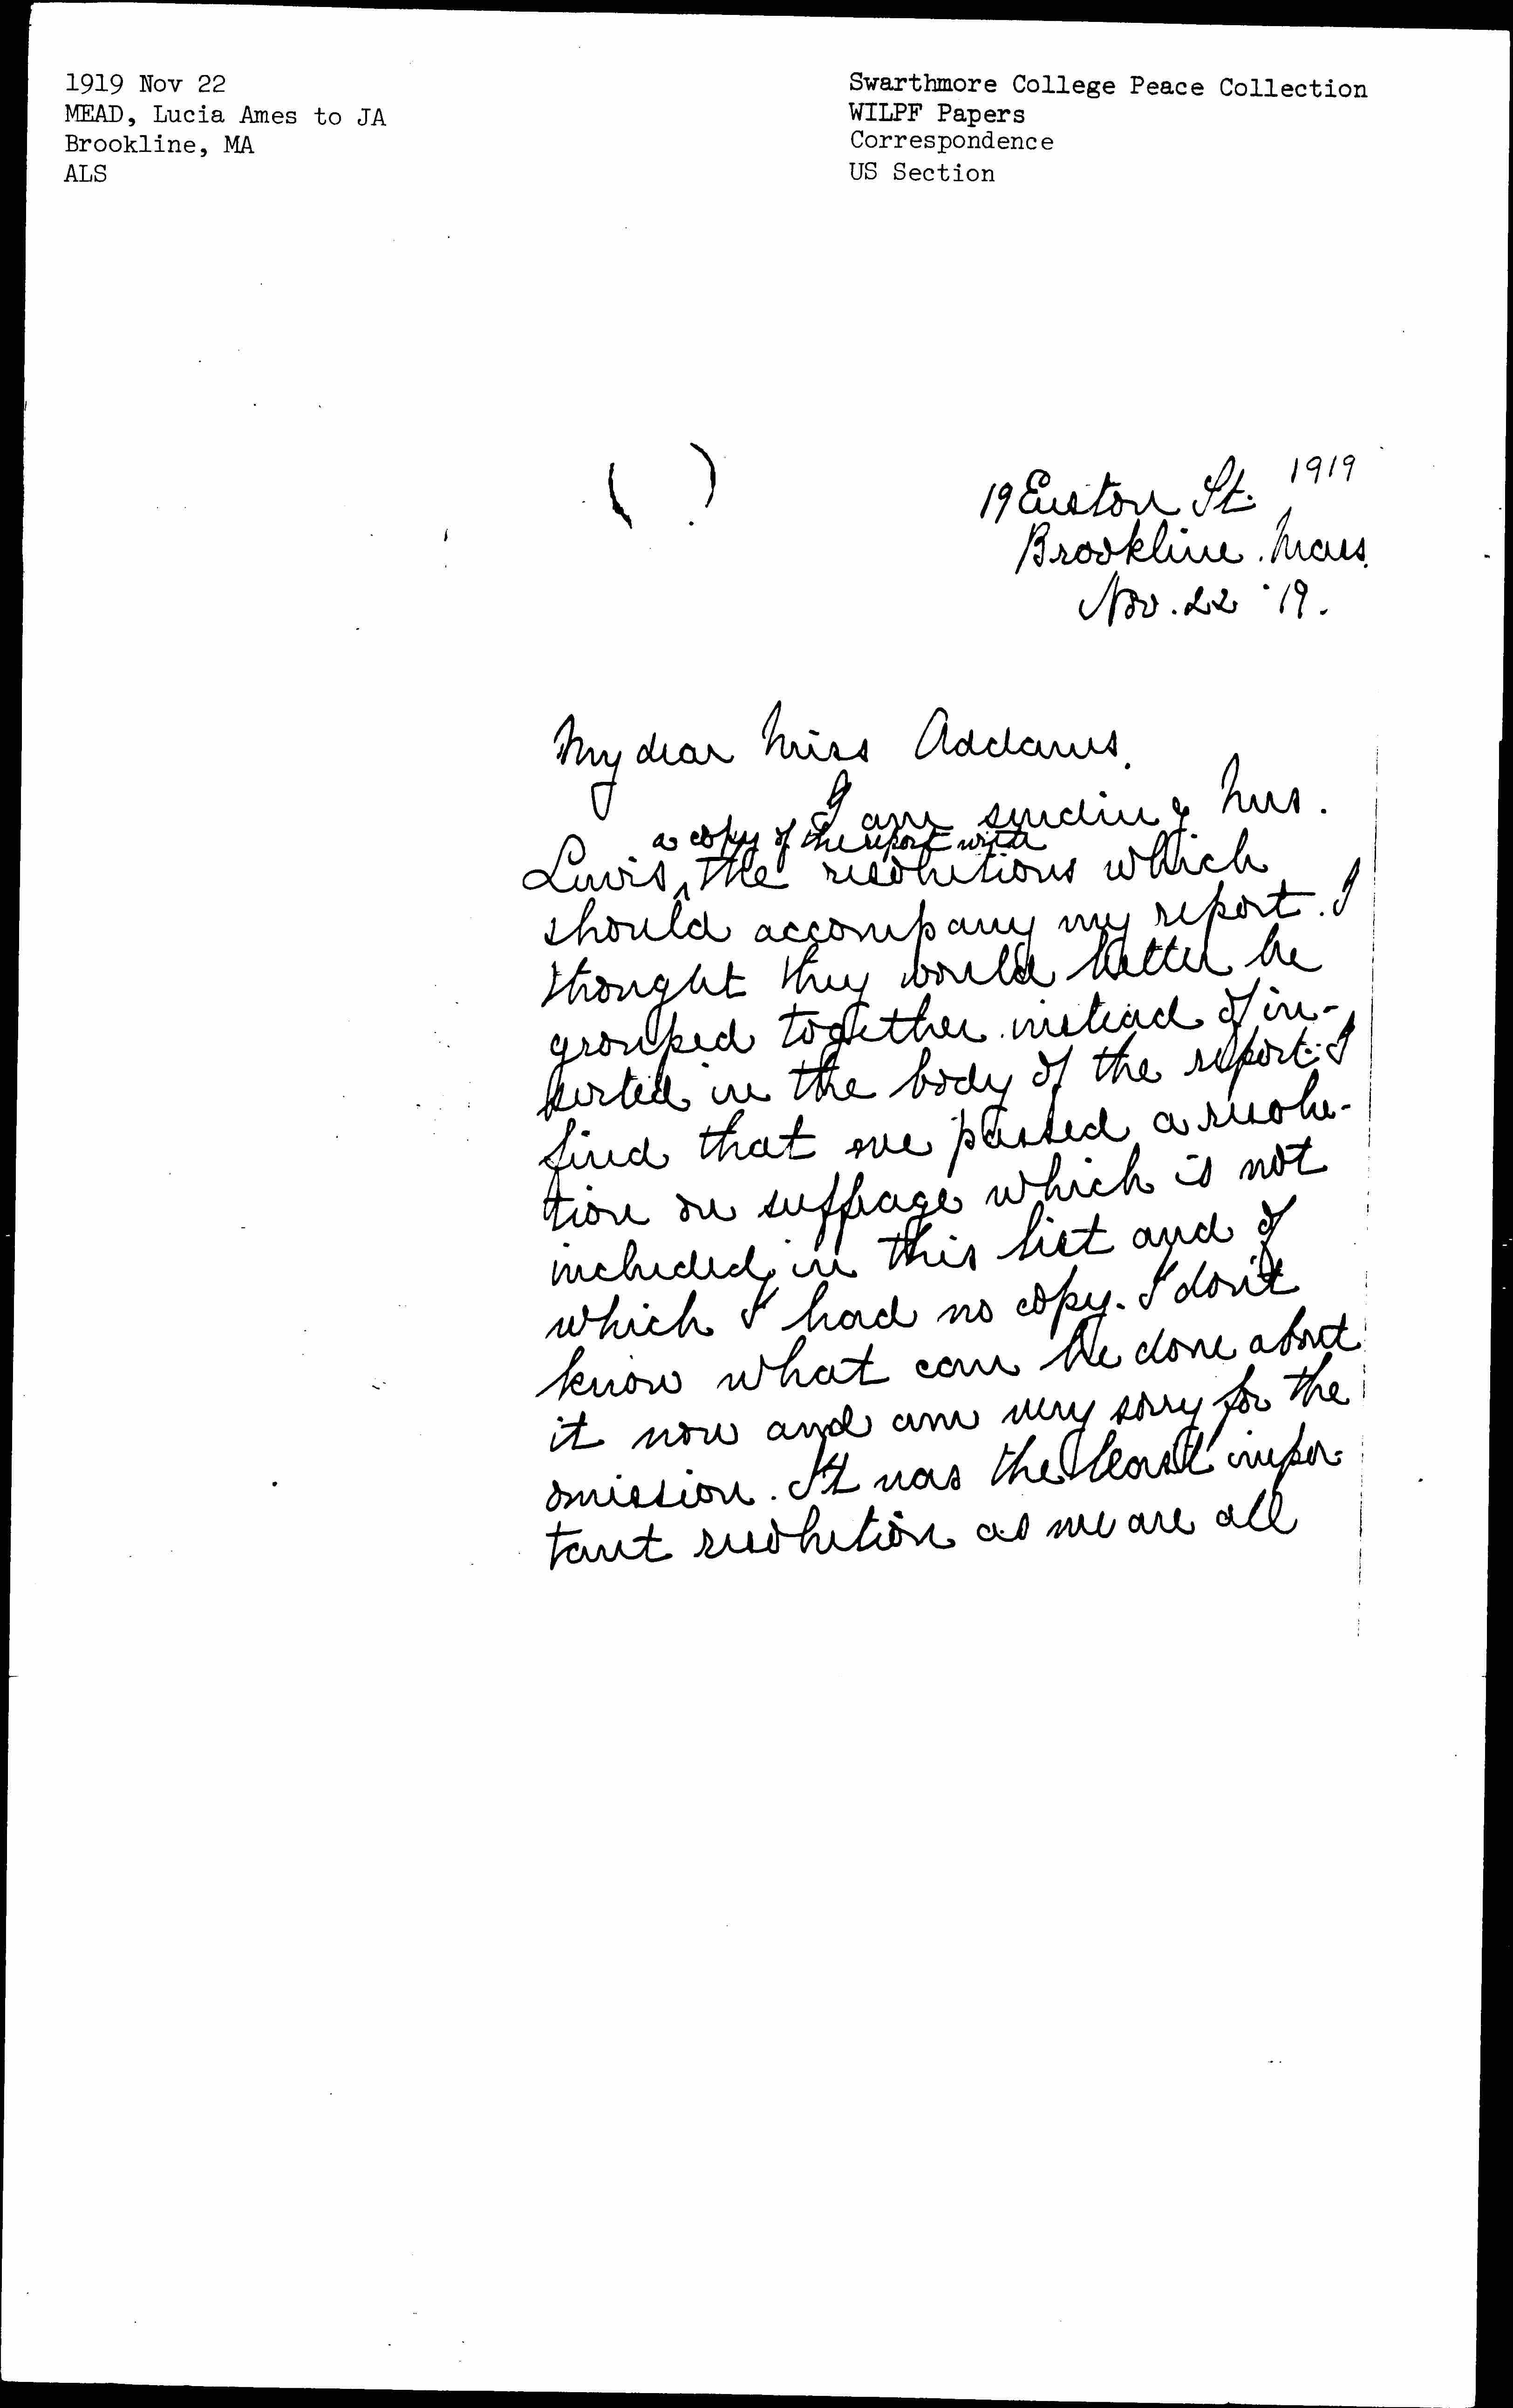 1919 Nov 22
MEAD, Lucia Ames to JA
Brookline, MA
ALS
Swarthmore College Peace Collection
WILPF Papers
Correspondence
US Section
( )
1919
19 Euston St.
Brookline. Mass.
Nov. 22 '19.
My dear Miss Addams.
I am sending Mrs.
a copy of the report with
Lewis, the resolutions which
should accompany my report. I
thought they would better be
grouped together instead of in-
serted in the body of the report. I
find that we passed a resolu-
tion on suffrage which is not
included in this list and of
which I had no copy. I don't
know what can be done about
it now and am very sorry for the
omission. It was the least impor-
tant resolution as we are all